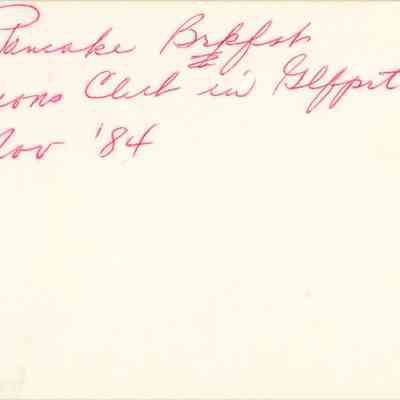 Pancake Brkfst
ions Club in Glfprt
Nov '84